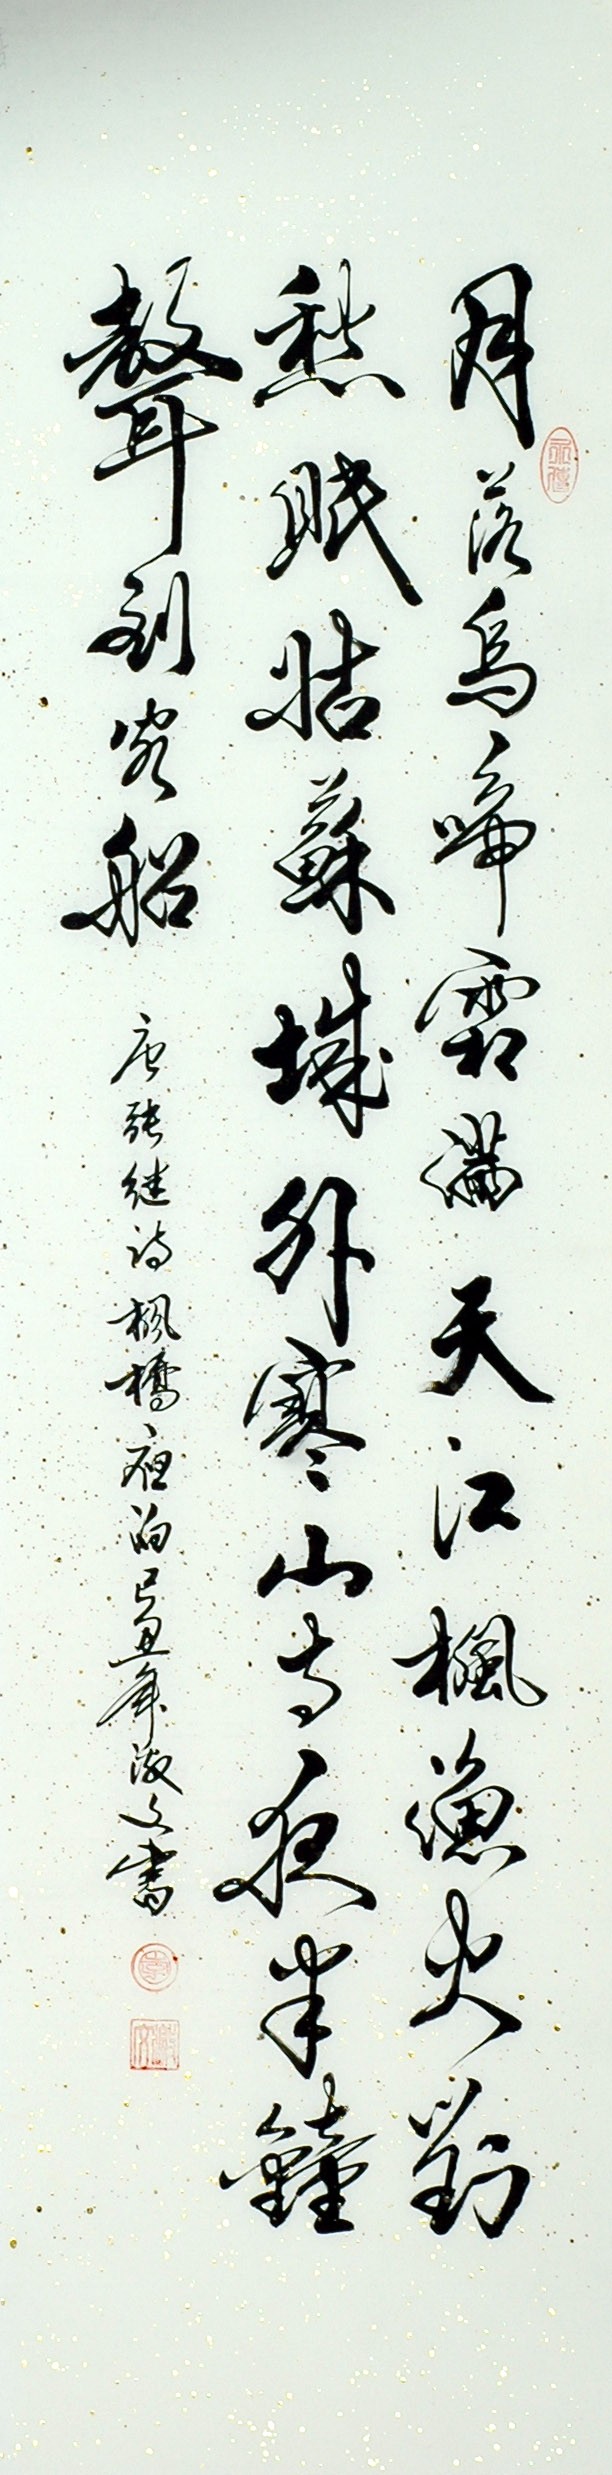 月落烏啼霜滿天江楓漁火對
愁眠姑蘇城外寒山寺夜半鐘
聲到客船
唐張继诗楓橋夜泊己丑年淑文書